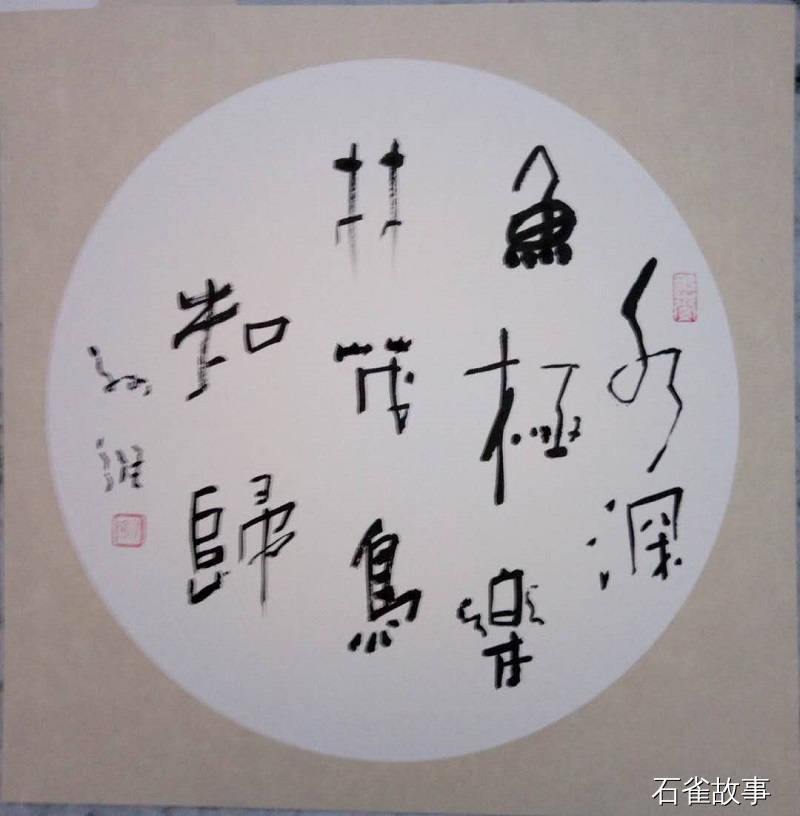 水深
魚極樂
林茂鳥
知歸
石雀故事